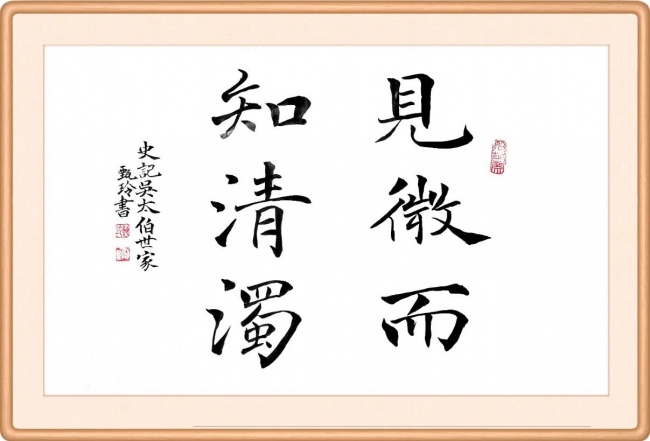 見微而
知清濁
史記吳太伯世家
甄玲書